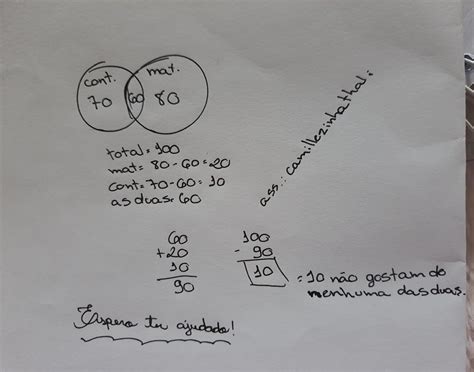 cont. mat.
70 60 80
total= 100
mat= 80-60=20
cont= 70-60= 10
as duas= 60
ass.: camillezinhathai:
60
+20
10
90
100
- 90
10
= 10 não gostam de
nenhuma das duas.
Espero ter ajudado!